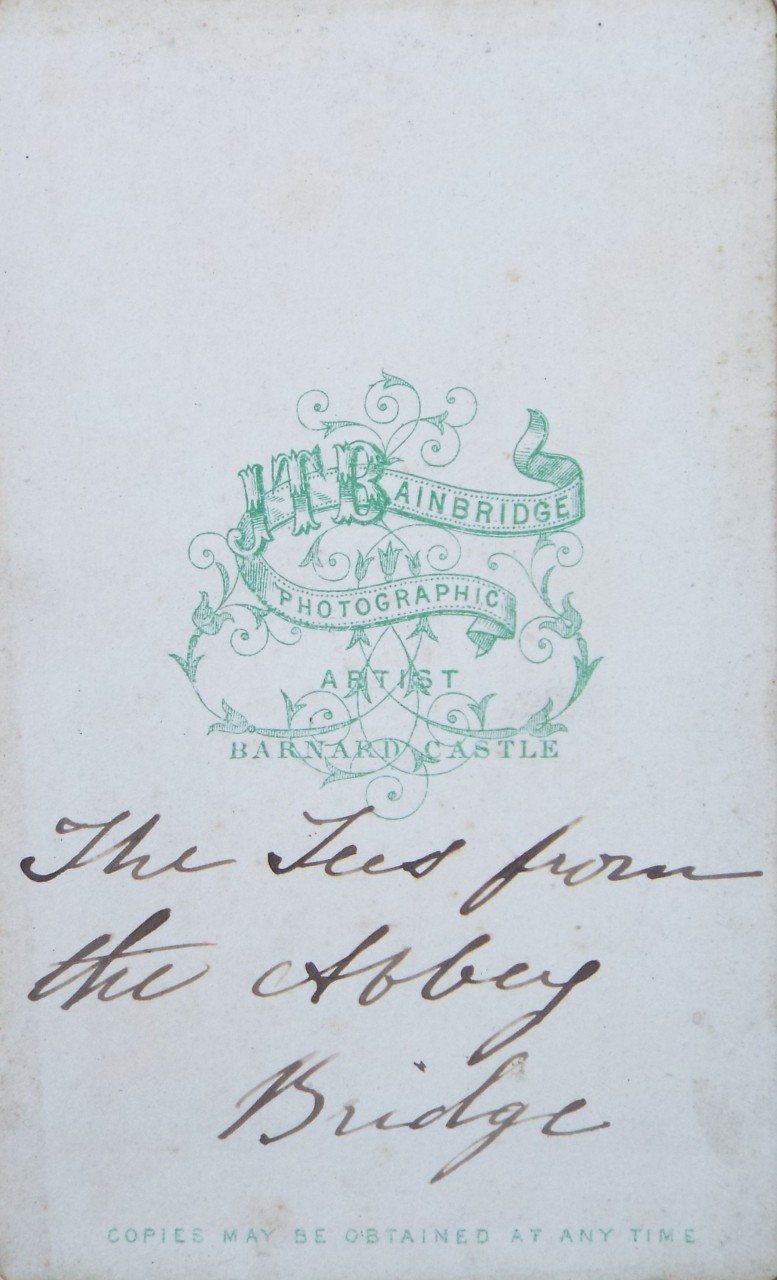 JTBAINBRIDGE
PHOTOGRAPHIC
ARTIST
BARNARD CASTLE
The Tees from
the Abbey
Bridge
COPIES MAY BE OBTAINED AT ANY TIME